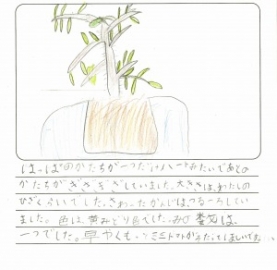 はっぱのかたちが一つだけハートみたいであとの
かたちがぎざぎざしていました。大きさは、わたしの
ひざくらいでした。さわったかんじは、つるつるしてい
ました。色は、黄みどり色でした。みの数は、
一つでした。早やく、ミニトマトがそだってほしいです。